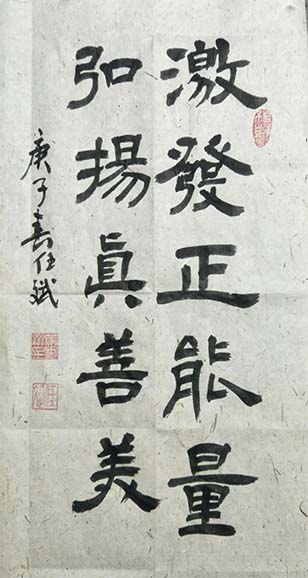 激發正能量
弘揚真善美
庚子春任斌